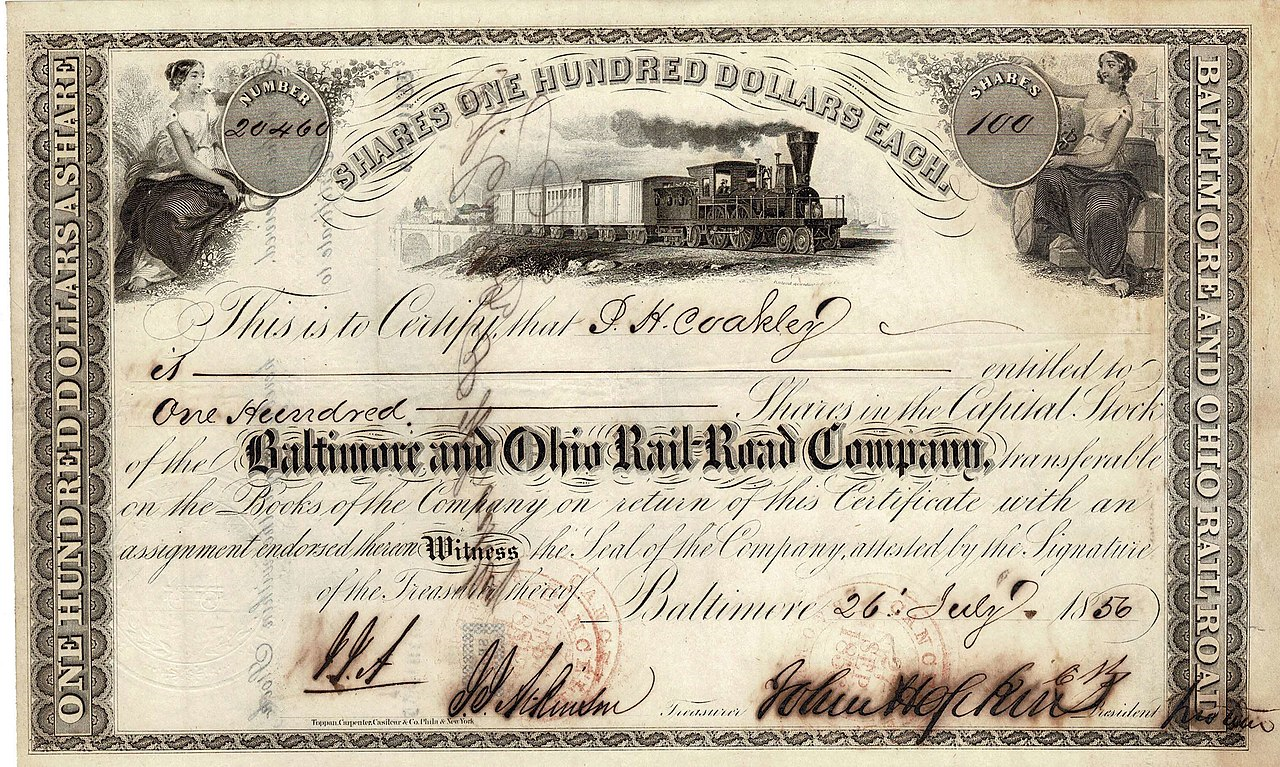 SHARES ONE HUNDRED DOLLARS EACH.
NUMBER
20460
SHARES
100
ONE HUNDRED DOLLARS A SHARE
BALTIMORE AND OHIO RAIL ROAD
This is to Certify, that J. H. Coakley
is entitled to
One Hundred Shares in the Capital Stock
of the Baltimore and Ohio Rail-Road Company, transferable
on the Books of the Company on return of this Certificate with an
assignment endorsed thereon Witness the Seal of the Company, attested by the Signature
of the Treasurer thereof
Baltimore 26 July 1856
J.J.A
J. J. Atkinson Treasurer John Hopkins President pro tem
Toppan, Carpenter, Casilear & Co. Phila & New York